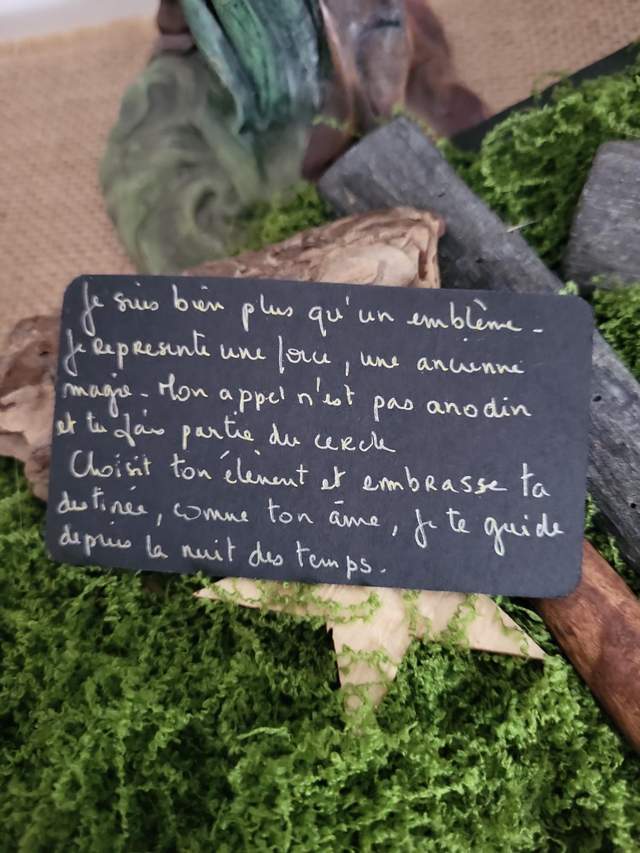 Je suis bien plus qu'un emblème -
Je représente une force, une ancienne
magie - Mon appel n'est pas anodin
et tu fais partie du cercle
Choisit ton élément et embrasse ta
destinée, comme ton âme, je te guide
depuis la nuit des temps.